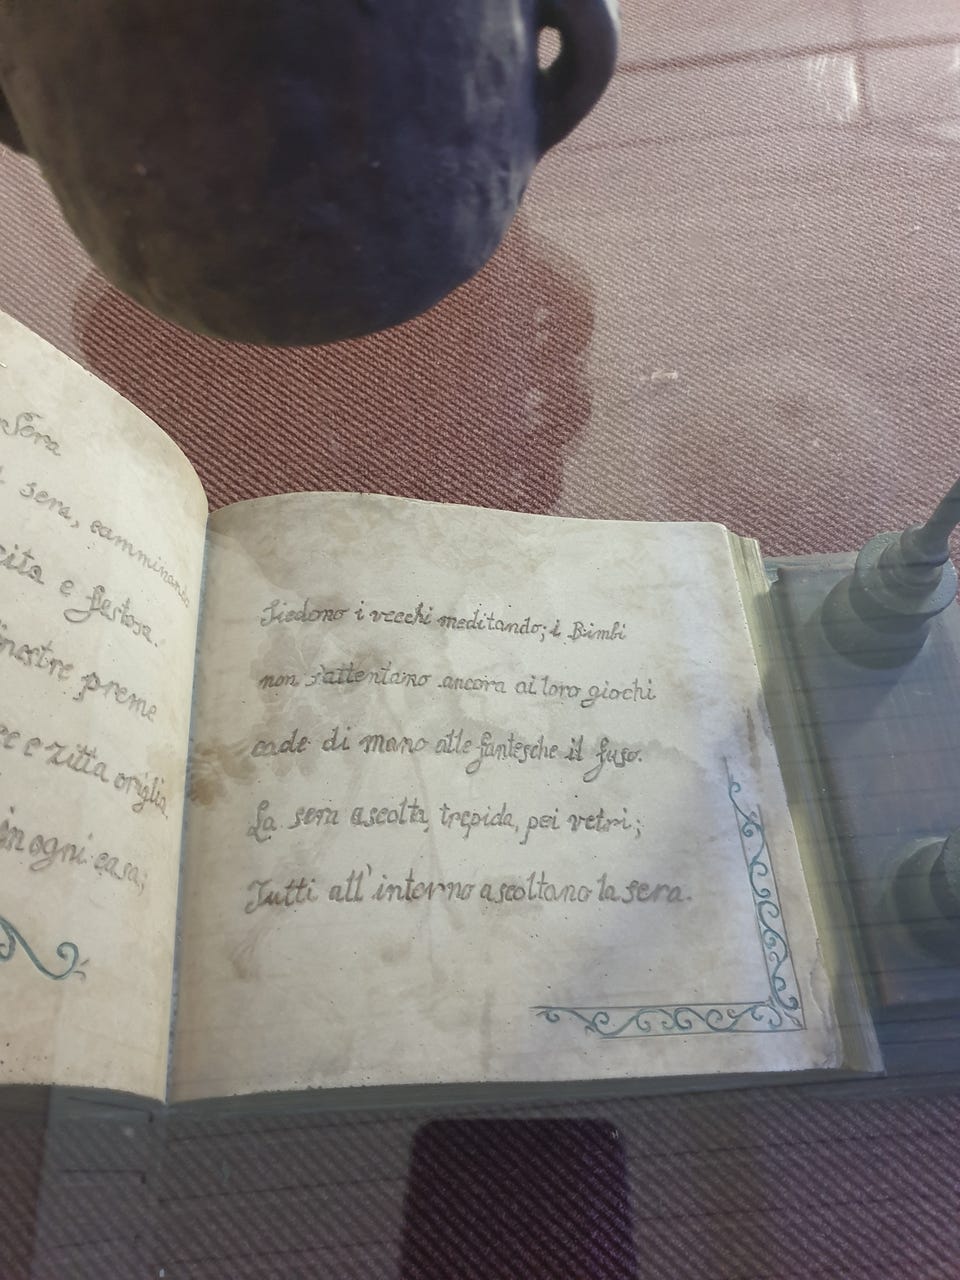 Sera
sera, camminando
cita e festosa.
finestre preme
ce e zitta origlia
in ogni casa;
Siedono i vecchi meditando; i Bimbi
non s'attentano ancora ai loro giochi
cade di mano alle fantesche il fuso.
La sera ascolta, trepida, pei vetri;
Tutti all'interno ascoltano la sera.